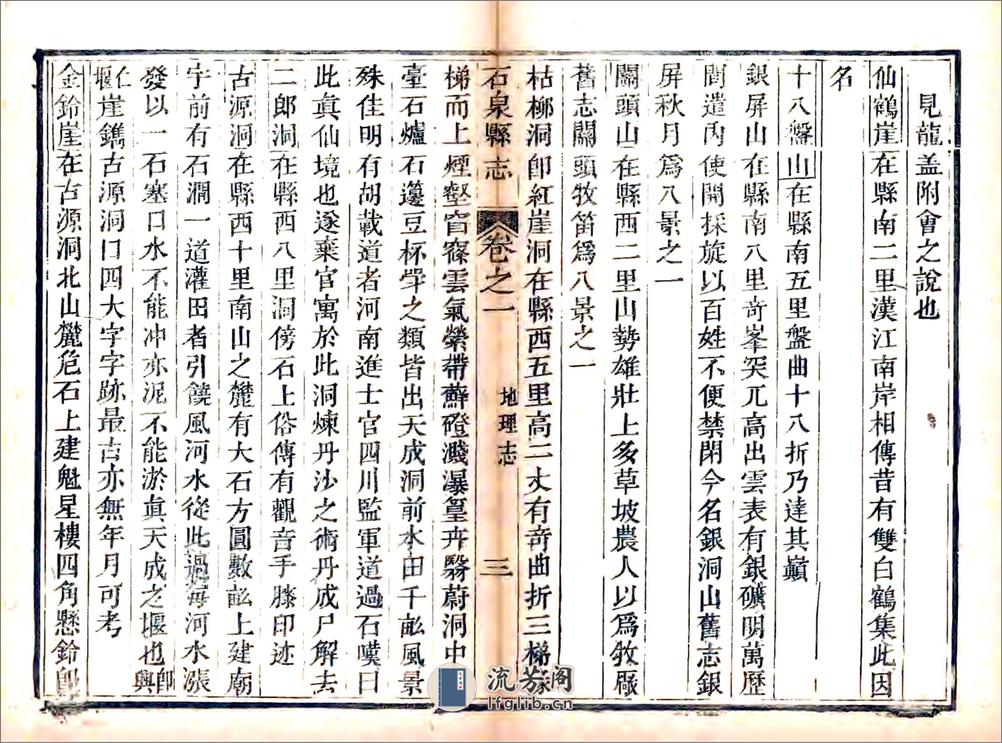 見龍盖附會之說也
仙鶴崖在縣南二里漢江南岸相傳昔有雙白鶴集此因
名
十八盤山在縣南五里盤曲十八折乃達其巔
銀屏山在縣南八里奇峯突兀高出雲表有銀礦明萬歷
間遣內使開採旋以百姓不便禁閉今名銀洞山舊志銀
屏秋月為八景之一
關頭山在縣西二里山勢雄壯上多草坡農人以為牧
舊志關頭牧笛為八景之一
枯柳洞卽紅崖洞在縣西五里高二丈有奇曲折三梯緣
石泉縣志 卷之一 地理志 三
梯而上煙壑窅窱雲氣縈帶蘚磴濺瀑篁卉翳蔚洞中
臺石爐石籩豆杯斝之類皆出天成洞前水田千畝風景
殊佳明有胡載道者河南進士官四川監軍道過石嘆曰
此真仙境也遂棄官寓於此洞煉丹沙之術丹成尸解去
二郎洞在縣西八里洞傍石上俗傳有觀音手膝印迹
古源洞在縣西十里南山之麓有大石方圓數畝上建廟
宇前有石澗一道灌田者引饒風河水從此過每河水漲
發以一石塞口水不能冲亦泥不能淤眞天成之堰也卽興
仁堰崖鐫古源洞口四大字字跡最古亦無年月可考
金鈴崖在古源洞北山麓危石上建魁星樓四角懸鈴卽
流芳阁
lfglib.cn